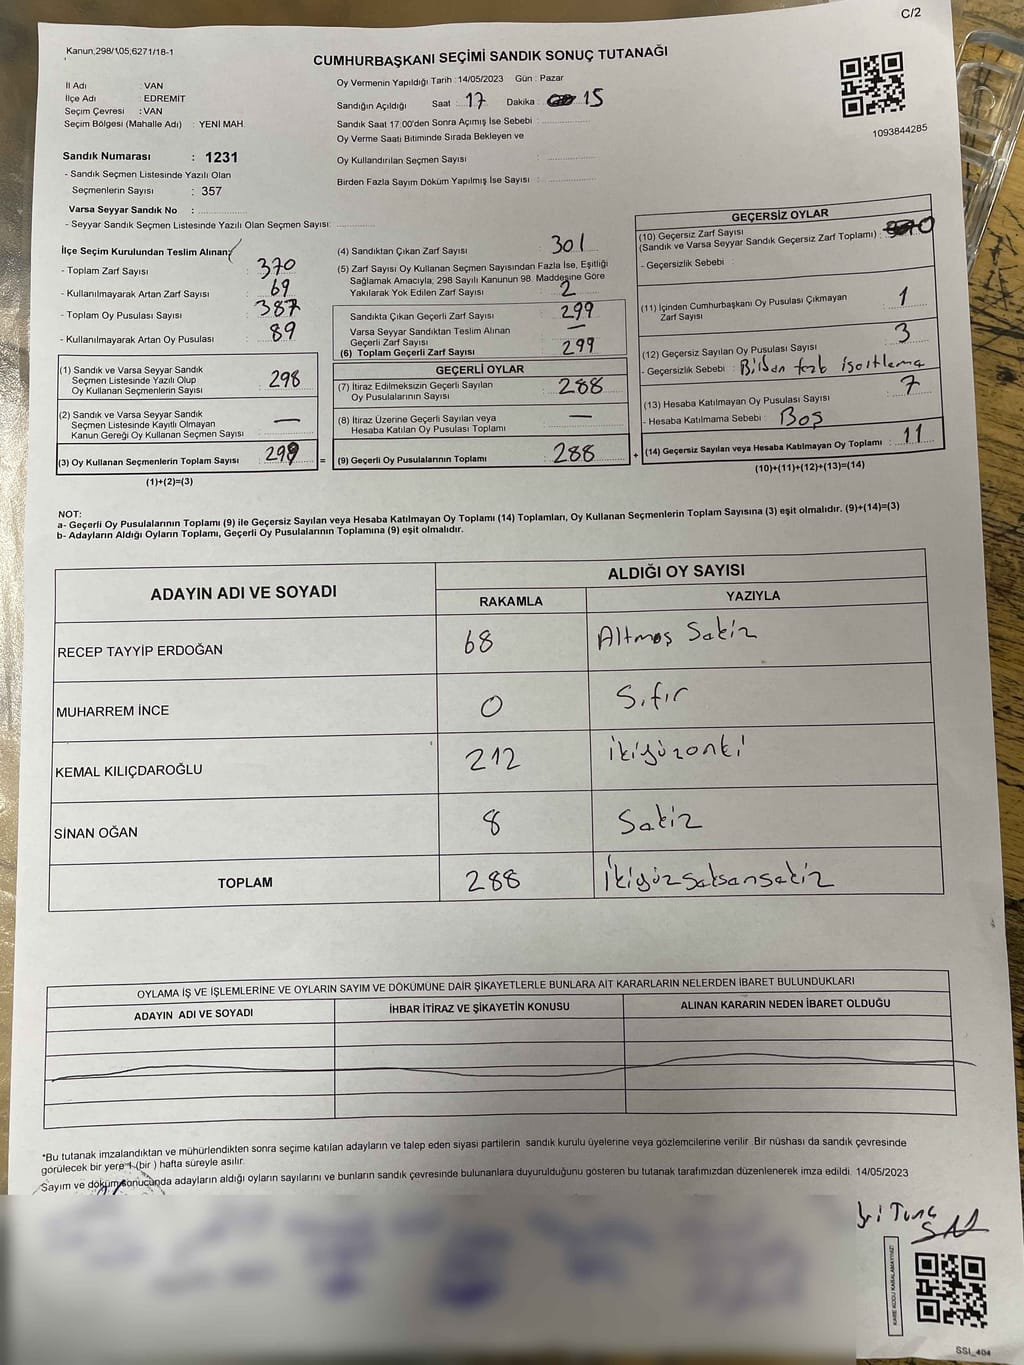 C/2
Kanun,298/105,6271/18-1
CUMHURBAŞKANI SEÇİMİ SANDIK SONUÇ TUTANAĞI
İl Adı : VAN
İlçe Adı : EDREMIT
Seçim Çevresi : VAN
Seçim Bölgesi (Mahalle Adı) : YENİ MAH.
Oy Vermenin Yapıldığı Tarih :14/05/2023 Gün : Pazar
Sandığın Açıldığı Saat : 17 Dakika : 15
Sandık Saat 17:00'den Sonra Açımış İse Sebebi :
Oy Verme Saati Bitiminde Sırada Bekleyen ve
Oy Kullandırılan Seçmen Sayısı :
Birden Fazla Sayım Döküm Yapılmış İse Sayısı :
1093844285
Sandık Numarası : 1231
- Sandık Seçmen Listesinde Yazılı Olan
Seçmenlerin Sayısı : 357
Varsa Seyyar Sandık No :
- Seyyar Sandık Seçmen Listesinde Yazılı Olan Seçmen Sayısı:
İlçe Seçim Kurulundan Teslim Alınan;
- Toplam Zarf Sayısı : 370
- Kullanılmayarak Artan Zarf Sayısı : 69
- Toplam Oy Pusulası Sayısı : 387
- Kullanılmayarak Artan Oy Pusulası : 89
(1) Sandık ve Varsa Seyyar Sandık
Seçmen Listesinde Yazılı Olup
Oy Kullanan Seçmenlerin Sayısı : 298
(2) Sandık ve Varsa Seyyar Sandık
Seçmen Listesinde Kayıtlı Olmayan
Kanun Gereği Oy Kullanan Seçmen Sayısı : —
(3) Oy Kullanan Seçmenlerin Toplam Sayısı : 299
(1)+(2)=(3)
(4) Sandıktan Çıkan Zarf Sayısı : 301
(5) Zarf Sayısı Oy Kullanan Seçmen Sayısından Fazla İse, Eşitliği
Sağlamak Amacıyla; 298 Sayılı Kanunun 98. Maddesine Göre
Yakılarak Yok Edilen Zarf Sayısı : 2
Sandıkta Çıkan Geçerli Zarf Sayısı : 299
Varsa Seyyar Sandıktan Teslim Alınan
Geçerli Zarf Sayısı : —
(6) Toplam Geçerli Zarf Sayısı : 299
GEÇERLİ OYLAR
(7) İtiraz Edilmeksizin Geçerli Sayılan
Oy Pusulalarının Sayısı : 288
(8) İtiraz Üzerine Geçerli Sayılan veya
Hesaba Katılan Oy Pusulası Toplamı : —
= (9) Geçerli Oy Pusulalarının Toplamı : 288
GEÇERSİZ OYLAR
(10) Geçersiz Zarf Sayısı
(Sandık ve Varsa Seyyar Sandık Geçersiz Zarf Toplamı) : 0
- Geçersizlik Sebebi :
(11) İçinden Cumhurbaşkanı Oy Pusulası Çıkmayan
Zarf Sayısı : 1
(12) Geçersiz Sayılan Oy Pusulası Sayısı : 3
- Geçersizlik Sebebi :
(13) Hesaba Katılmayan Oy Pusulası Sayısı : 7
- Hesaba Katılmama Sebebi : Boş
+ (14) Geçersiz Sayılan veya Hesaba Katılmayan Oy Toplamı : 11
(10)+(11)+(12)+(13)=(14)
NOT:
a- Geçerli Oy Pusulalarının Toplamı (9) ile Geçersiz Sayılan veya Hesaba Katılmayan Oy Toplamı (14) Toplamları, Oy Kullanan Seçmenlerin Toplam Sayısına (3) eşit olmalıdır. (9)+(14)=(3)
b- Adayların Aldığı Oyların Toplamı, Geçerli Oy Pusulalarının Toplamına (9) eşit olmalıdır.
ADAYIN ADI VE SOYADI ALDIĞI OY SAYISI
RAKAMLA YAZIYLA
RECEP TAYYİP ERDOĞAN 68 Altmış Sekiz
MUHARREM İNCE 0 Sıfır
KEMAL KILIÇDAROĞLU 212 ikiyüzoniki
SİNAN OĞAN 8 Sekiz
TOPLAM 288 ikiyüzseksensekiz
OYLAMA İŞ VE İŞLEMLERİNE VE OYLARIN SAYIM VE DÖKÜMÜNE DAİR ŞİKAYETLERLE BUNLARA AİT KARARLARIN NELERDEN İBARET BULUNDUKLARI
ADAYIN ADI VE SOYADI İHBAR İTİRAZ VE ŞİKAYETİN KONUSU ALINAN KARARIN NEDEN İBARET OLDUĞU
*Bu tutanak imzalandıktan ve mühürlendikten sonra seçime katılan adayların ve talep eden siyasi partilerin sandık kurulu üyelerine veya gözlemcilerine verilir .Bir nüshası da sandık çevresinde
görülecek bir yere 1 (bir ) hafta süreyle asılır.
Sayım ve döküm sonucunda adayların aldığı oyların sayılarını ve bunların sandık çevresinde bulunanlara duyurulduğunu gösteren bu tutanak tarafımızdan düzenlenerek imza edildi. 14/05/2023
KARE KODU KARALAMAYINIZ!
SSI_404